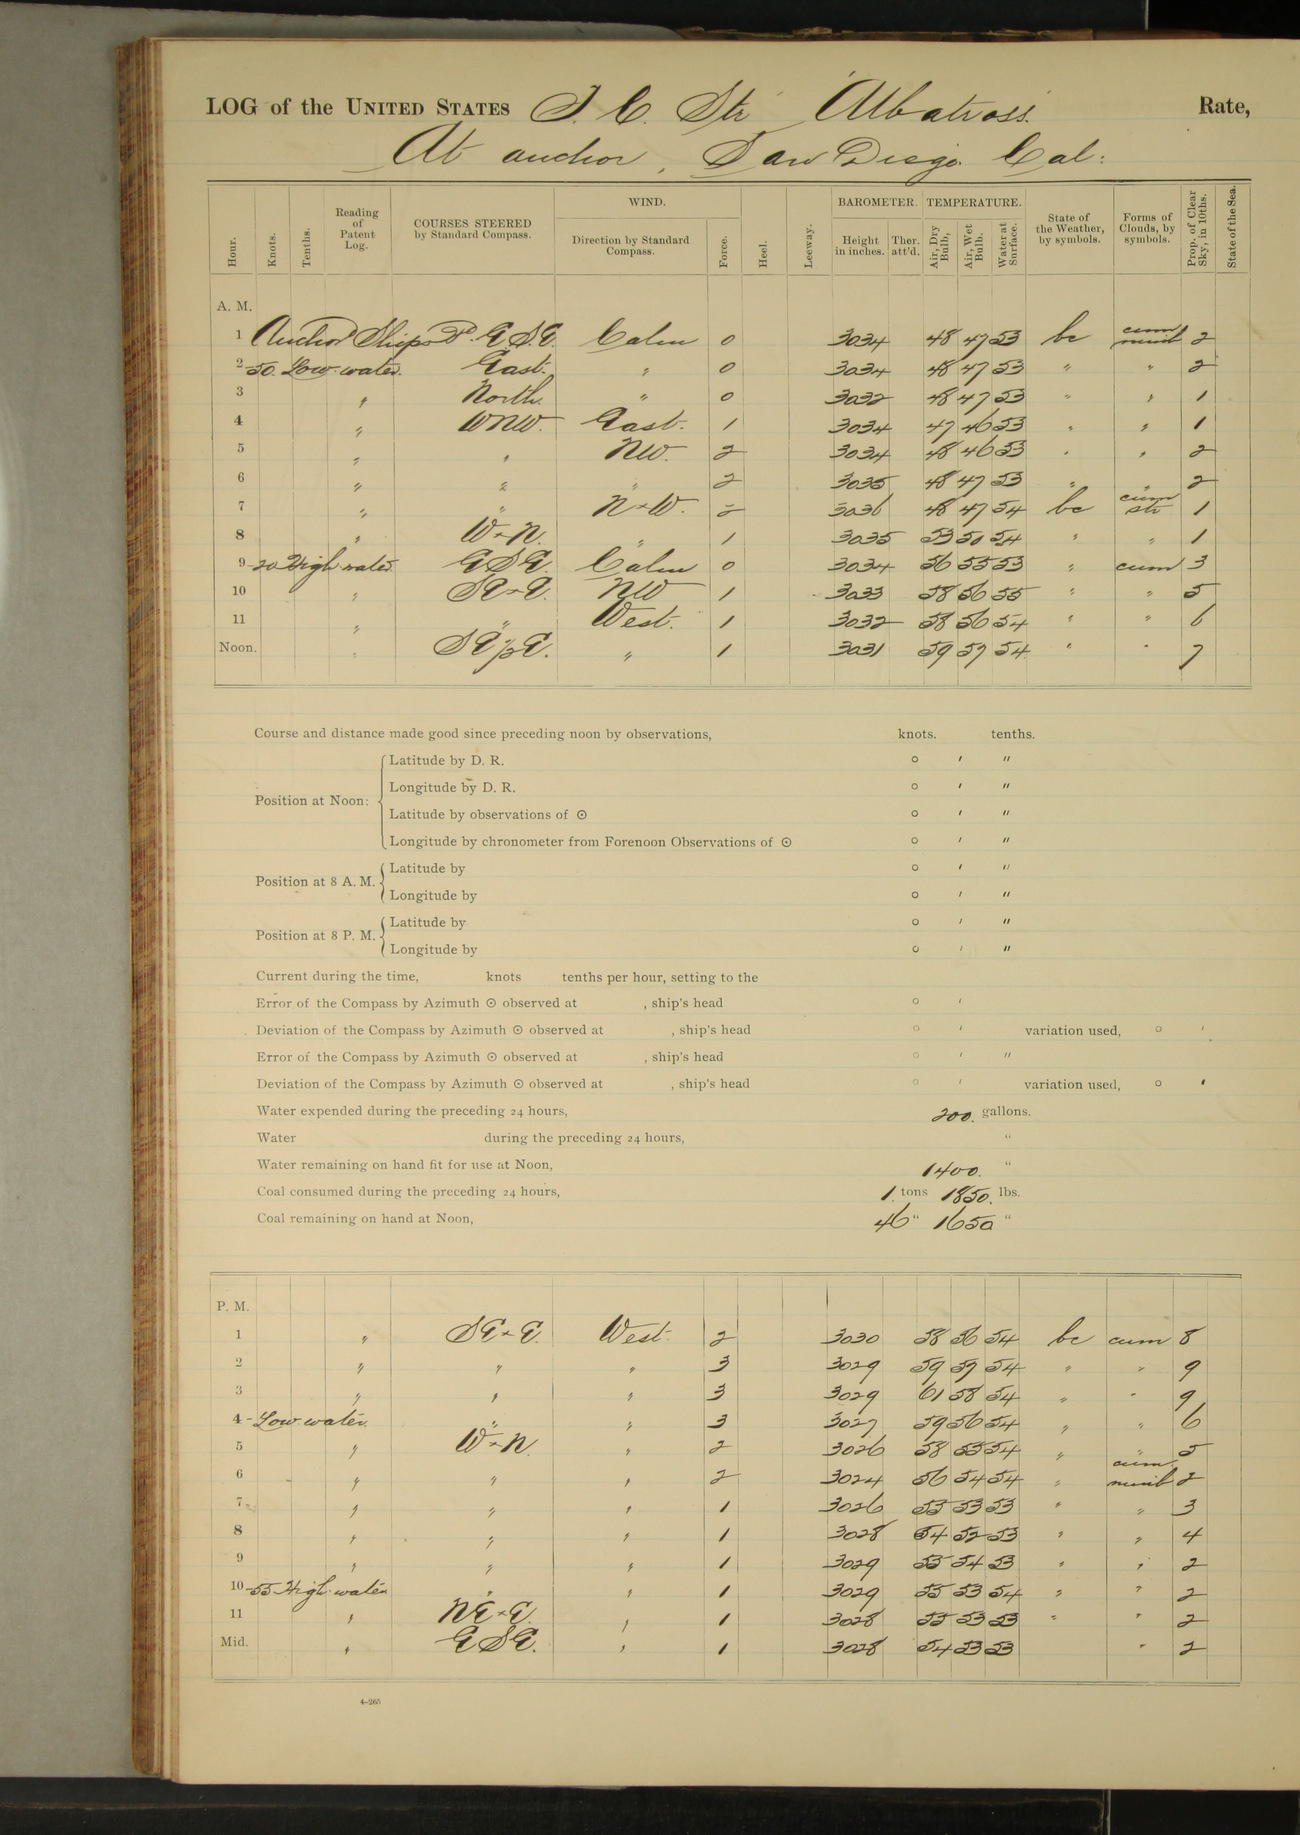 LOG of the UNITED STATES F. C. Str "Albatross" Rate,
At anchor, San Diego. Cal:
Hour. Knots. Tenths. Reading of Patent Log. COURSES STEERED by Standard Compass. WIND. Direction by Standard Compass. Force. Heel. Leeway. BAROMETER. Height in inches. Ther. att'd. TEMPERATURE. Air, Dry Bulb, Air, Wet Bulb. Water at Surface. State of the Weather, by symbols. Forms of Clouds, by symbols. Prop. of Clear Sky, in 10ths. State of the Sea.
A. M.
1 Anchor Ships Hd. E.S.E. Calm 0 3034 48 47 53 bc cum nimb 2
2-50. Low water. East. " 0 3034 48 47 53 " " 2
3 " North. " 0 3032 48 47 53 " " 1
4 " WNW. East. 1 3034 47 46 53 " " 1
5 " " NW. 2 3034 48 46 53 " " 2
6 " " " 2 3035 48 47 53 " " 2
7 " " NxW. 2 3036 48 47 54 bc cum str 1
8 " WxN. " 1 3035 53 50 54 " " 1
9-20 High water ESE. Calm 0 3034 56 55 53 " cum 3
10 " SExE. NW 1 3033 58 56 55 " " 5
11 " " West. 1 3032 58 56 54 " " 6
Noon. " SE½E. " 1 3031 59 57 54 " " 7
Course and distance made good since preceding noon by observations, knots. tenths.
Position at Noon: Latitude by D. R. ° ′ ″
Longitude by D. R. ° ′ ″
Latitude by observations of ⊙ ° ′ ″
Longitude by chronometer from Forenoon Observations of ⊙ ° ′ ″
Position at 8 A. M. Latitude by ° ′ ″
Longitude by ° ′ ″
Position at 8 P. M. Latitude by ° ′ ″
Longitude by ° ′ ″
Current during the time, knots tenths per hour, setting to the
Error of the Compass by Azimuth ⊙ observed at , ship's head ° ′
Deviation of the Compass by Azimuth ⊙ observed at , ship's head ° ′ variation used, ° ′
Error of the Compass by Azimuth ⊙ observed at , ship's head ° ′ ″
Deviation of the Compass by Azimuth ⊙ observed at , ship's head ° ′ variation used, ° ′
Water expended during the preceding 24 hours, 200. gallons.
Water during the preceding 24 hours, "
Water remaining on hand fit for use at Noon, 1400. "
Coal consumed during the preceding 24 hours, 1. tons 1850. lbs.
Coal remaining on hand at Noon, 46 " 1650 "
P. M.
1 " SExE. West. 2 3030 58 56 54 bc cum 8
2 " " " 3 3029 59 57 54 " " 9
3 " " " 3 3029 61 58 54 " " 9
4-Low water. " " 3 3027 59 56 54 " " 6
5 " WxN. " 2 3026 58 55 54 " " 5
6 " " " 2 3024 56 54 54 " cum. nimb 2
7 " " " 1 3026 55 53 53 " " 3
8 " " " 1 3028 54 52 53 " " 4
9 " " " 1 3029 55 54 53 " " 2
10-55 High water " " 1 3029 55 53 54 " " 2
11 " NExE. " 1 3028 55 53 53 " " 2
Mid. " ESE. " 1 3028 54 53 53 " 2
4-265